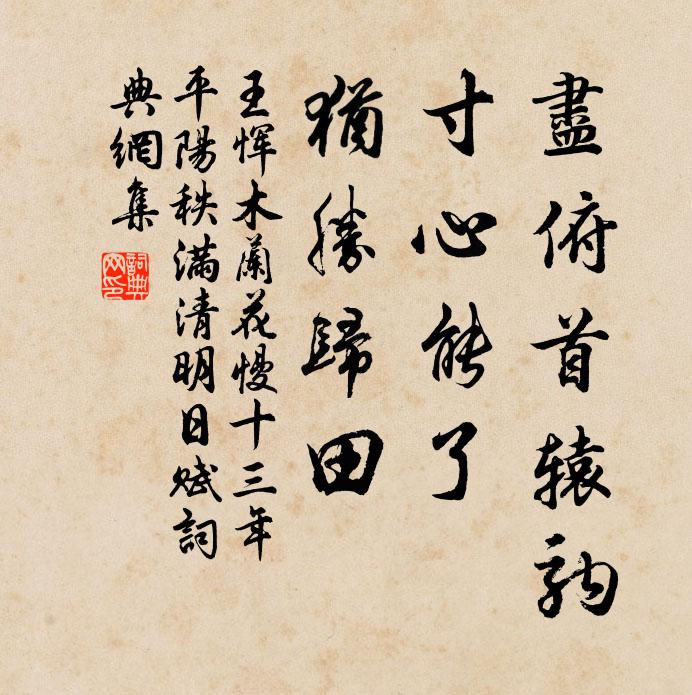 盡俯首辕駒
寸心能了
猶勝歸田
王恽木蘭花慢十三年
平陽秩满清明日赋詞
典網集
詞典网印